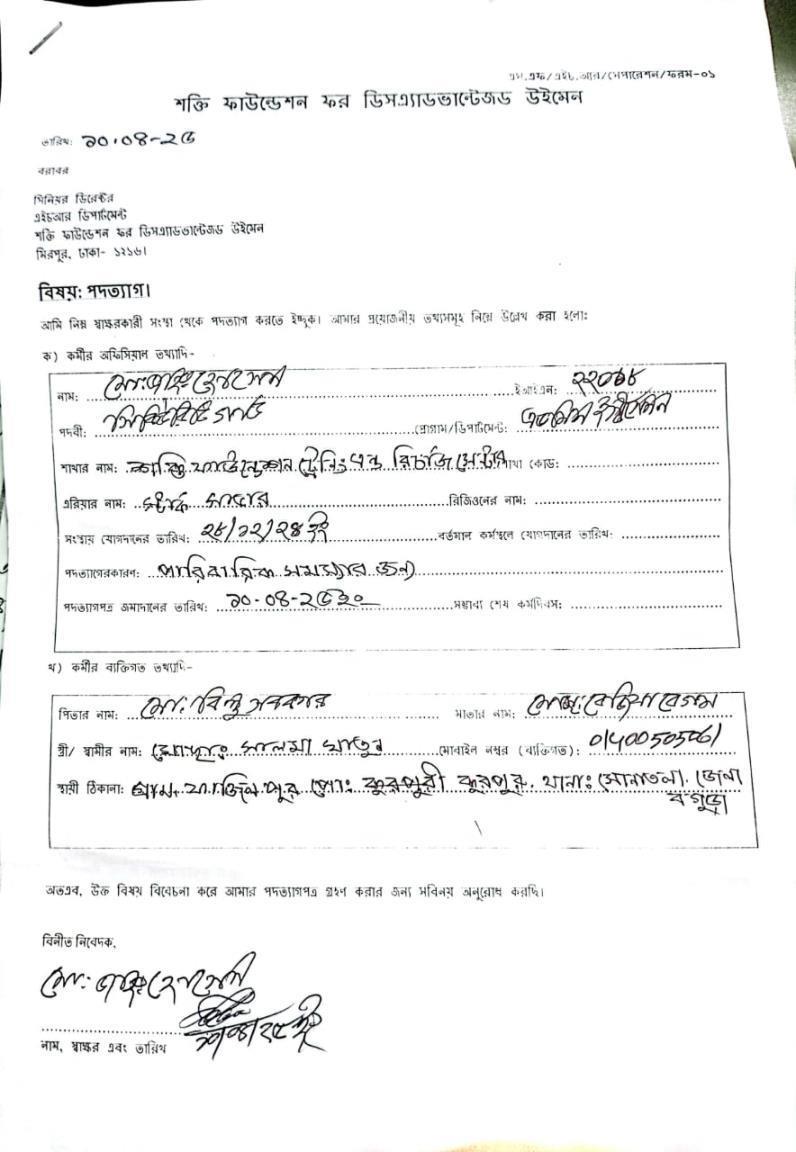 এস.এফ/এইচ.আর/সেপারেশন/ফরম-০১
শক্তি ফাউন্ডেশন ফর ডিসএ্যাডভান্টেজড উইমেন
তারিখ: ১০.০৪-২৫
বরাবর
সিনিয়র ডিরেক্টর
এইচআর ডিপার্টমেন্ট
শক্তি ফাউন্ডেশন ফর ডিসএ্যাডভান্টেজড উইমেন
মিরপুর, ঢাকা- ১২১৬।
বিষয়: পদত্যাগ।
আমি নিম্ন স্বাক্ষরকারী সংস্থা থেকে পদত্যাগ করতে ইচ্ছুক। আমার প্রয়োজনীয় তথ্যসমূহ নিম্নে উল্লেখ করা হলো:
ক) কর্মীর অফিসিয়াল তথ্যাদি-
নাম: মো: ইআইএন:
পদবী: সিকিউরিটি গার্ড প্রোগ্রাম/ডিপার্টমেন্ট:
শাখার নাম: শক্তি ফাউন্ডেশন ট্রেনিং এন্ড রিচার্জ সেন্টার শাখা কোড:
এরিয়ার নাম: রিজিওনের নাম:
সংস্থায় যোগদানের তারিখ: ২৮/১২/২৪ ইং বর্তমান কর্মস্থলে যোগদানের তারিখ:
পদত্যাগেরকারণ: পারিবারিক সমস্যার জন্য
পদত্যাগপত্র জমাদানের তারিখ: ১০-০৪-২৫ ইং সম্ভাব্য শেষ কর্মদিবস:
খ) কর্মীর ব্যক্তিগত তথ্যাদি-
পিতার নাম: মো: বিলু সরকার মাতার নাম: বেগম
স্ত্রী/ স্বামীর নাম: মোছা: সালমা খাতুন মোবাইল নম্বর (ব্যক্তিগত): 01400505061
স্থায়ী ঠিকানা: গ্রাম. ফাজিলপুর পো: থানা: সোনাতলা. জেলা
বগুড়া
অতএব, উক্ত বিষয় বিবেচনা করে আমার পদত্যাগপত্র গ্রহণ করার জন্য সবিনয় অনুরোধ করছি।
বিনীত নিবেদক,
মো:
১০/০৪/২৫ ইং
নাম, স্বাক্ষর এবং তারিখ